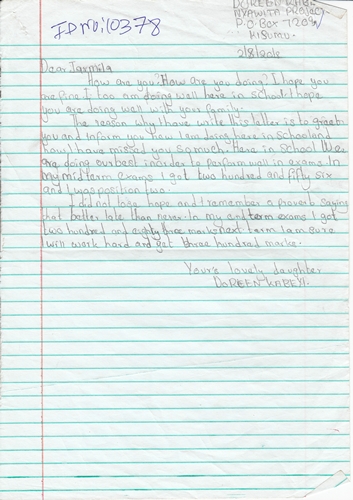 ID NO: 10378
DOREEN
NYAWITA
P.O BOX 7209
KISUMU.
2/8/2018
Dear Jarmila
How are you? How are you doing? I hope you
are fine I too am doing well here in school. I hope
you are doing well with your family.
The reason why I have write this letter is to greet
you and inform you how I am doing here in school and
how I have missed you so much. Here in school we
are doing our best in order to perform well in exams. In
my midterm exams I got two hundred and fifty six
and I was position two.
I did not lose hope and I remember a proverb saying
that better late than never. In my endterm exams I got
two hundred and eighty marks next term I am sure
I will work hard and get three hundred marks.
Yours lovely daughter
DOREEN